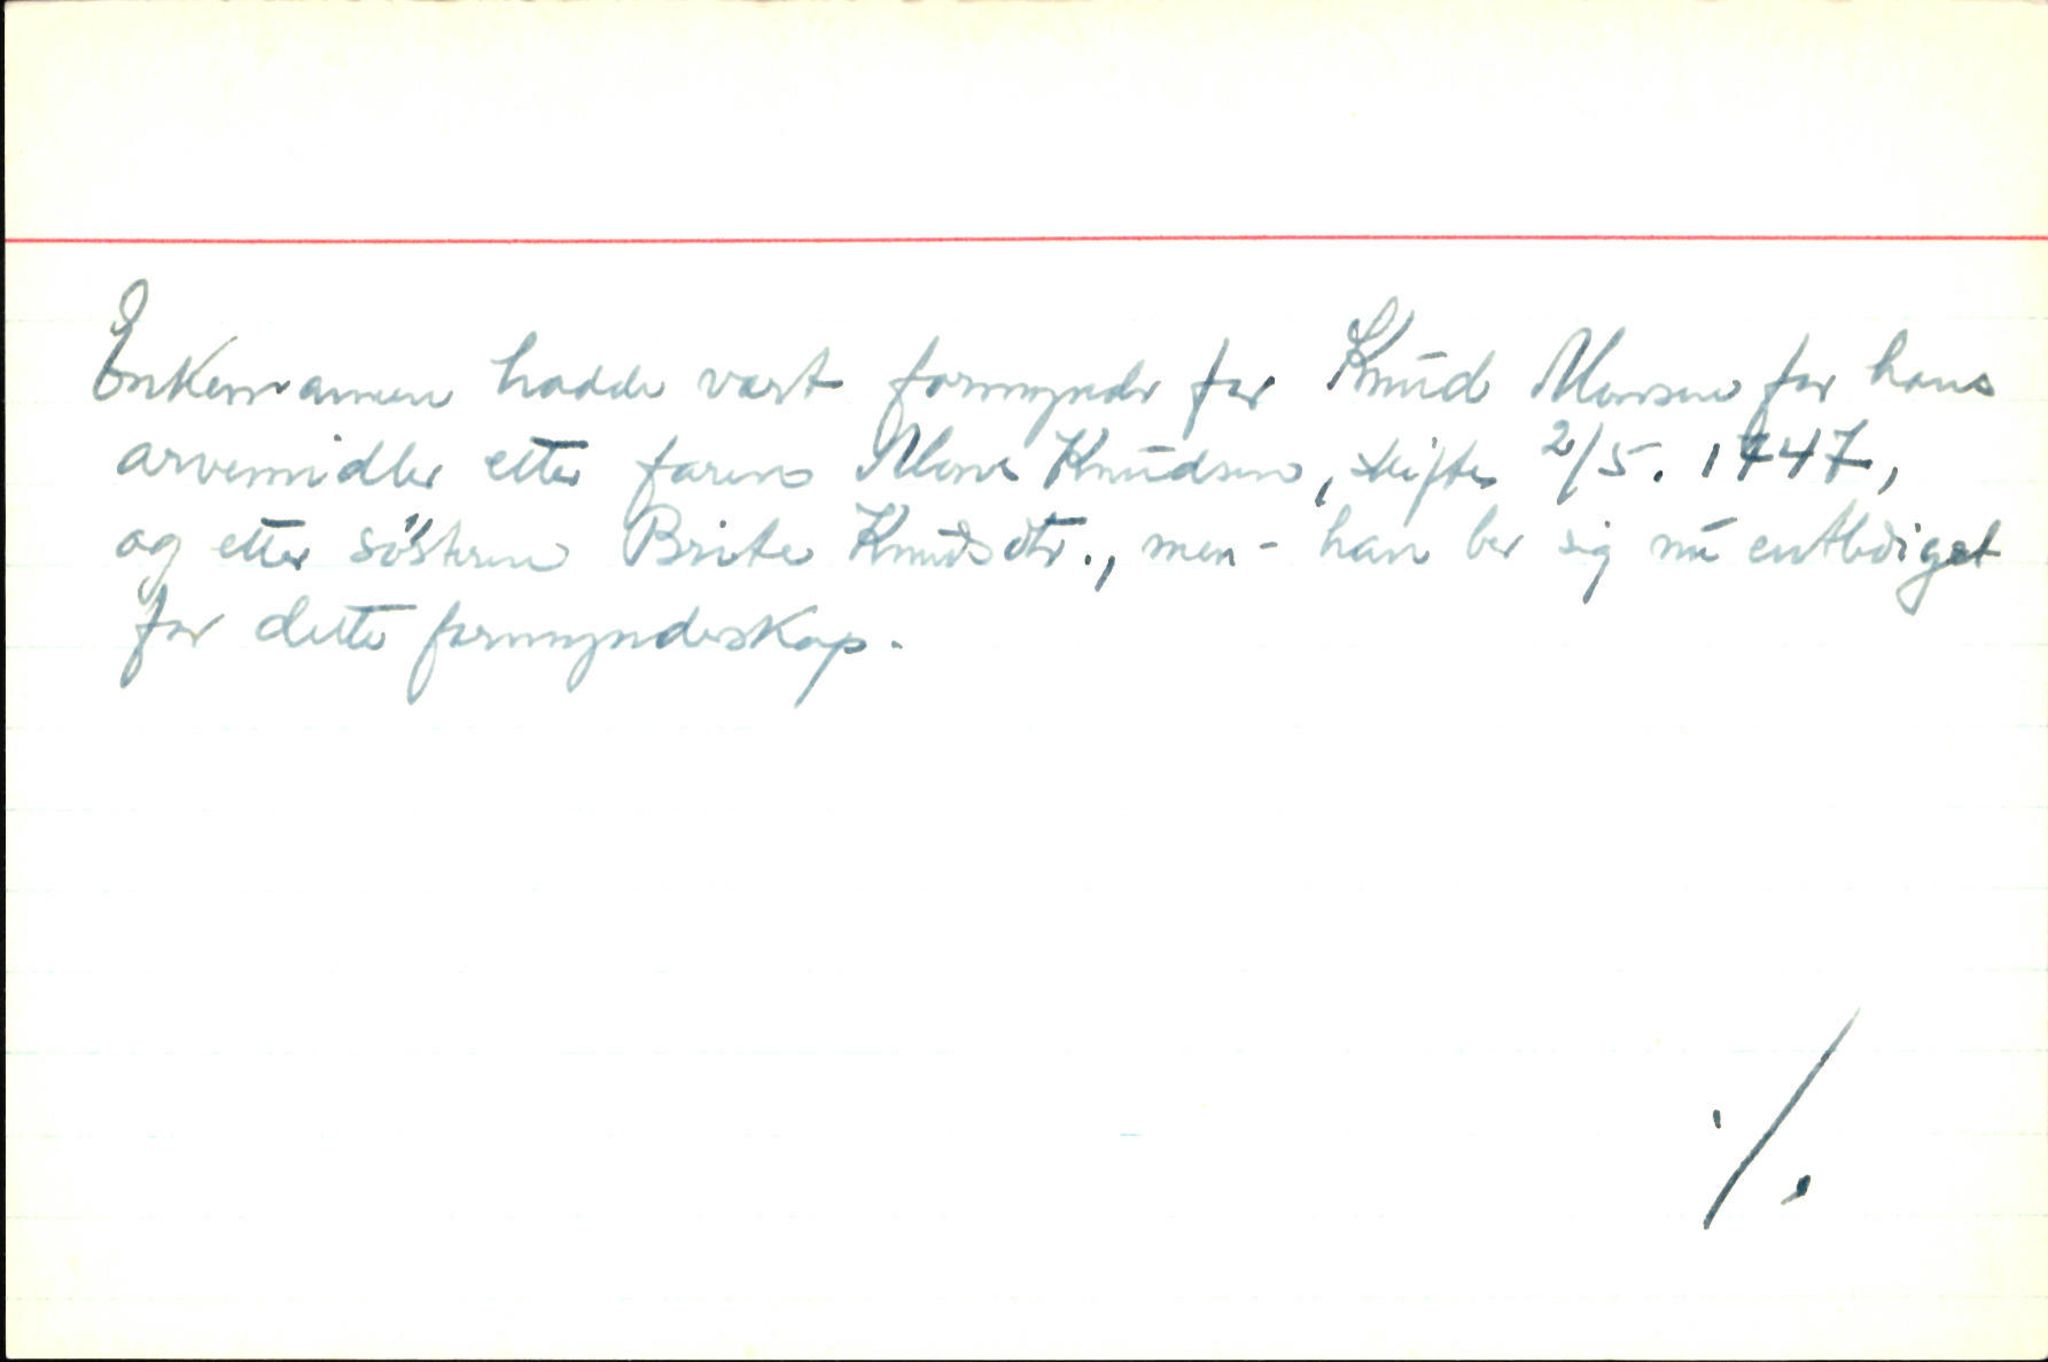 Enkemannen hadde vært formynder for Knud Monsen for hans
arvemidler etter faren Mons Knudsen, skifte 2/5. 1747,
og etter söstren Brite Knudsdtr., men - han ber sig nu entlediget
for dette formynderskap.
./.